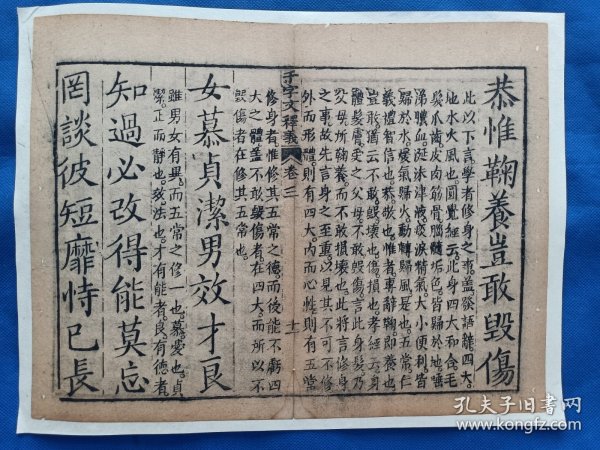 恭惟鞠養豈敢毀傷
此以下言學者修身之事。蓋發語辭四大。
地水火風也圓覺經云。此身四大和合毛
髮爪齒。皮肉筋骨腦髓垢色。皆歸於地。唾
涕膿血。涎沫津液。痰淚精氣大小便利。皆
歸於水。煖氣歸火動轉歸風是也。五常仁
義禮智信也。恭敬也惟者專辭鞠即養也。
豈敢猶云不敢毀壞也。傷損也。孝經云身
體髮膚受之父母不敢毀傷言此身髮乃
父母所鞠養。而不敢損壞也此將言修身
之事故先言身之至重以見其不可不修
外而形體則有四大内而心性則有五常
千字文釋義 卷三 十一
修身者惟修其五常之德。而後能不虧四
大之體蓋不敢毀傷者。在四大而所以不
毀傷者在修其五常也。
女慕貞潔男效才良
雖男女有異。而五常之修一也。慕愛也貞
潔。正而靜也。效法也。才有能者。良有德者。
知過必改得能莫忘
罔談彼短靡恃己長
孔夫子旧书网
www.kongfz.com